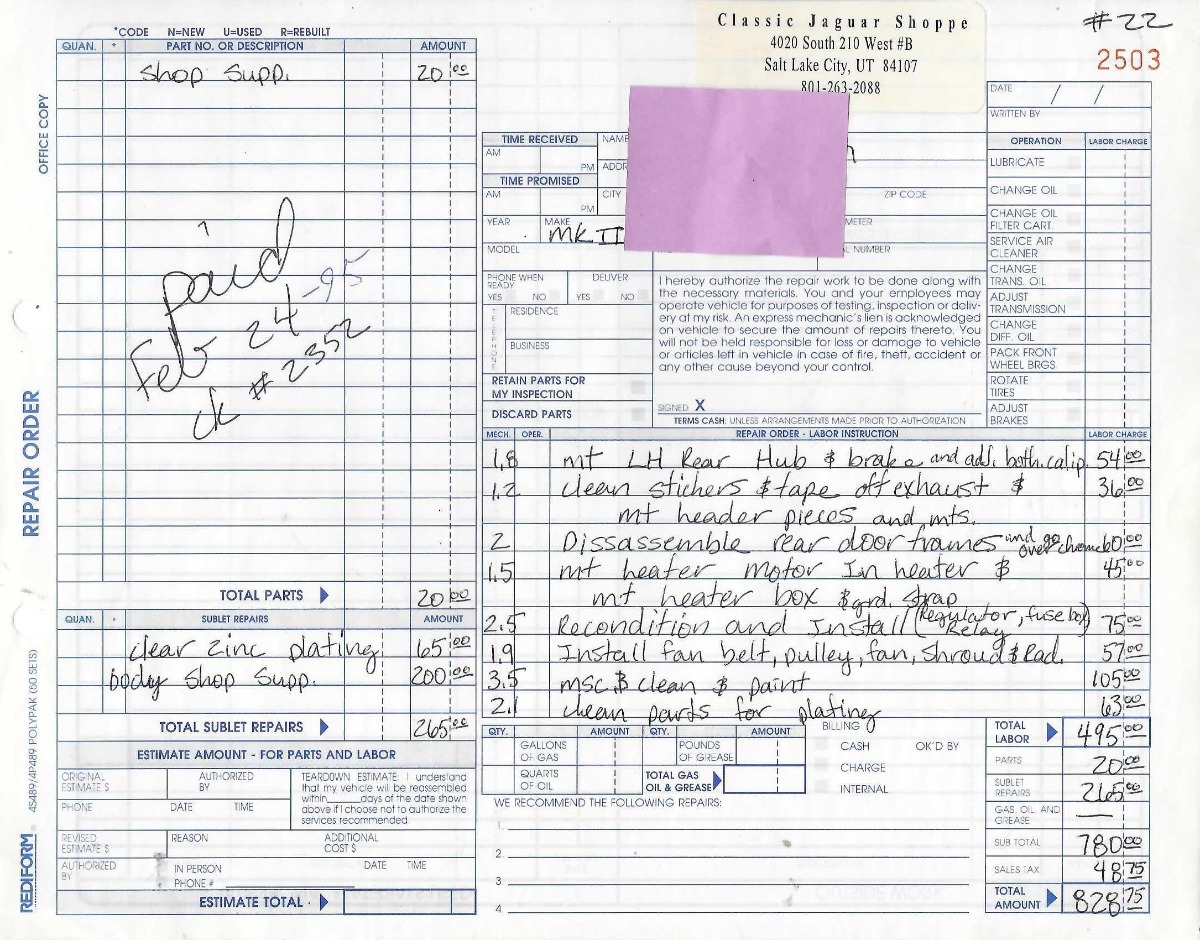 Classic Jaguar Shoppe
4020 South 210 West #B
Salt Lake City, UT 84107
801-263-2088
#22
2503
*CODE N=NEW U=USED R=REBUILT
QUAN. * PART NO. OR DESCRIPTION AMOUNT
Shop Supp. 20 00
OFFICE COPY
paid
Feb 24-95
ck # 2352
REPAIR ORDER
TOTAL PARTS 20 00
QUAN. * SUBLET REPAIRS AMOUNT
clear zinc plating 65 00
body Shop Supp. 200 00
TOTAL SUBLET REPAIRS 265 00
ESTIMATE AMOUNT - FOR PARTS AND LABOR
ORIGINAL ESTIMATE $ AUTHORIZED BY
PHONE DATE TIME
TEARDOWN ESTIMATE: I understand
that my vehicle will be reassembled
within____days of the date shown
above if I choose not to authorize the
services recommended.
REVISED ESTIMATE $ REASON ADDITIONAL COST $
AUTHORIZED BY IN PERSON DATE TIME
PHONE #
ESTIMATE TOTAL
REDIFORM 4S489/4P489 POLYPAK (50 SETS)
DATE / /
WRITTEN BY
TIME RECEIVED NAME
AM PM ADDR
TIME PROMISED
AM PM CITY ZIP CODE
YEAR MAKE METER
MK II
MODEL L NUMBER
PHONE WHEN READY DELIVER
YES NO YES NO
TELEPHONE
RESIDENCE
BUSINESS
RETAIN PARTS FOR
MY INSPECTION
DISCARD PARTS
I hereby authorize the repair work to be done along with
the necessary materials. You and your employees may
operate vehicle for purposes of testing, inspection or deliv-
ery at my risk. An express mechanic's lien is acknowledged
on vehicle to secure the amount of repairs thereto. You
will not be held responsible for loss or damage to vehicle
or articles left in vehicle in case of fire, theft, accident or
any other cause beyond your control.
SIGNED X
TERMS CASH: UNLESS ARRANGEMENTS MADE PRIOR TO AUTHORIZATION
OPERATION LABOR CHARGE
LUBRICATE
CHANGE OIL
CHANGE OIL
FILTER CART.
SERVICE AIR
CLEANER
CHANGE
TRANS. OIL
ADJUST
TRANSMISSION
CHANGE
DIFF. OIL
PACK FRONT
WHEEL BRGS
ROTATE
TIRES
ADJUST
BRAKES
MECH. OPER. REPAIR ORDER - LABOR INSTRUCTION LABOR CHARGE
1.8 mt LH Rear Hub & brake and adj. both calip. 54 00
1.2 clean stichers & tape off exhaust & 36 00
mt header pieces and mts.
2 Dissassemble rear door frames and go over chrome 60 00
1.5 mt heater motor In heater & 45 00
mt heater box & grd. strap
2.5 Recondition and Install (Regulator, fuse box) Relay 75 00
1.9 Install fan belt, pulley, fan, Shroud & Rad. 57 00
3.5 msc $ clean & paint 105 00
2.1 clean parts for plating 63 00
QTY. AMOUNT QTY. AMOUNT
GALLONS OF GAS POUNDS OF GREASE
QUARTS OF OIL TOTAL GAS OIL & GREASE
BILLING
CASH OK'D BY
CHARGE
INTERNAL
WE RECOMMEND THE FOLLOWING REPAIRS:
1.
2.
3
4
TOTAL LABOR 495 00
PARTS 20 00
SUBLET REPAIRS 265 00
GAS, OIL AND GREASE —
SUB TOTAL 780 00
SALES TAX 48 75
TOTAL AMOUNT 828 75